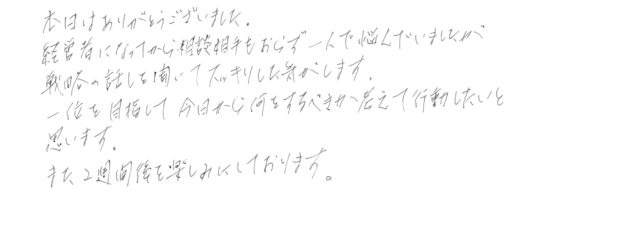 本日はありがとうございました。
経営者になってから相談相手もおらず一人で悩んでいましたが
戦略の話しを聞いてスッキリした気がします。
一位を目指して今日から何をするべきか考えて行動したいと
思います。
また2週間後を楽しみにしております。